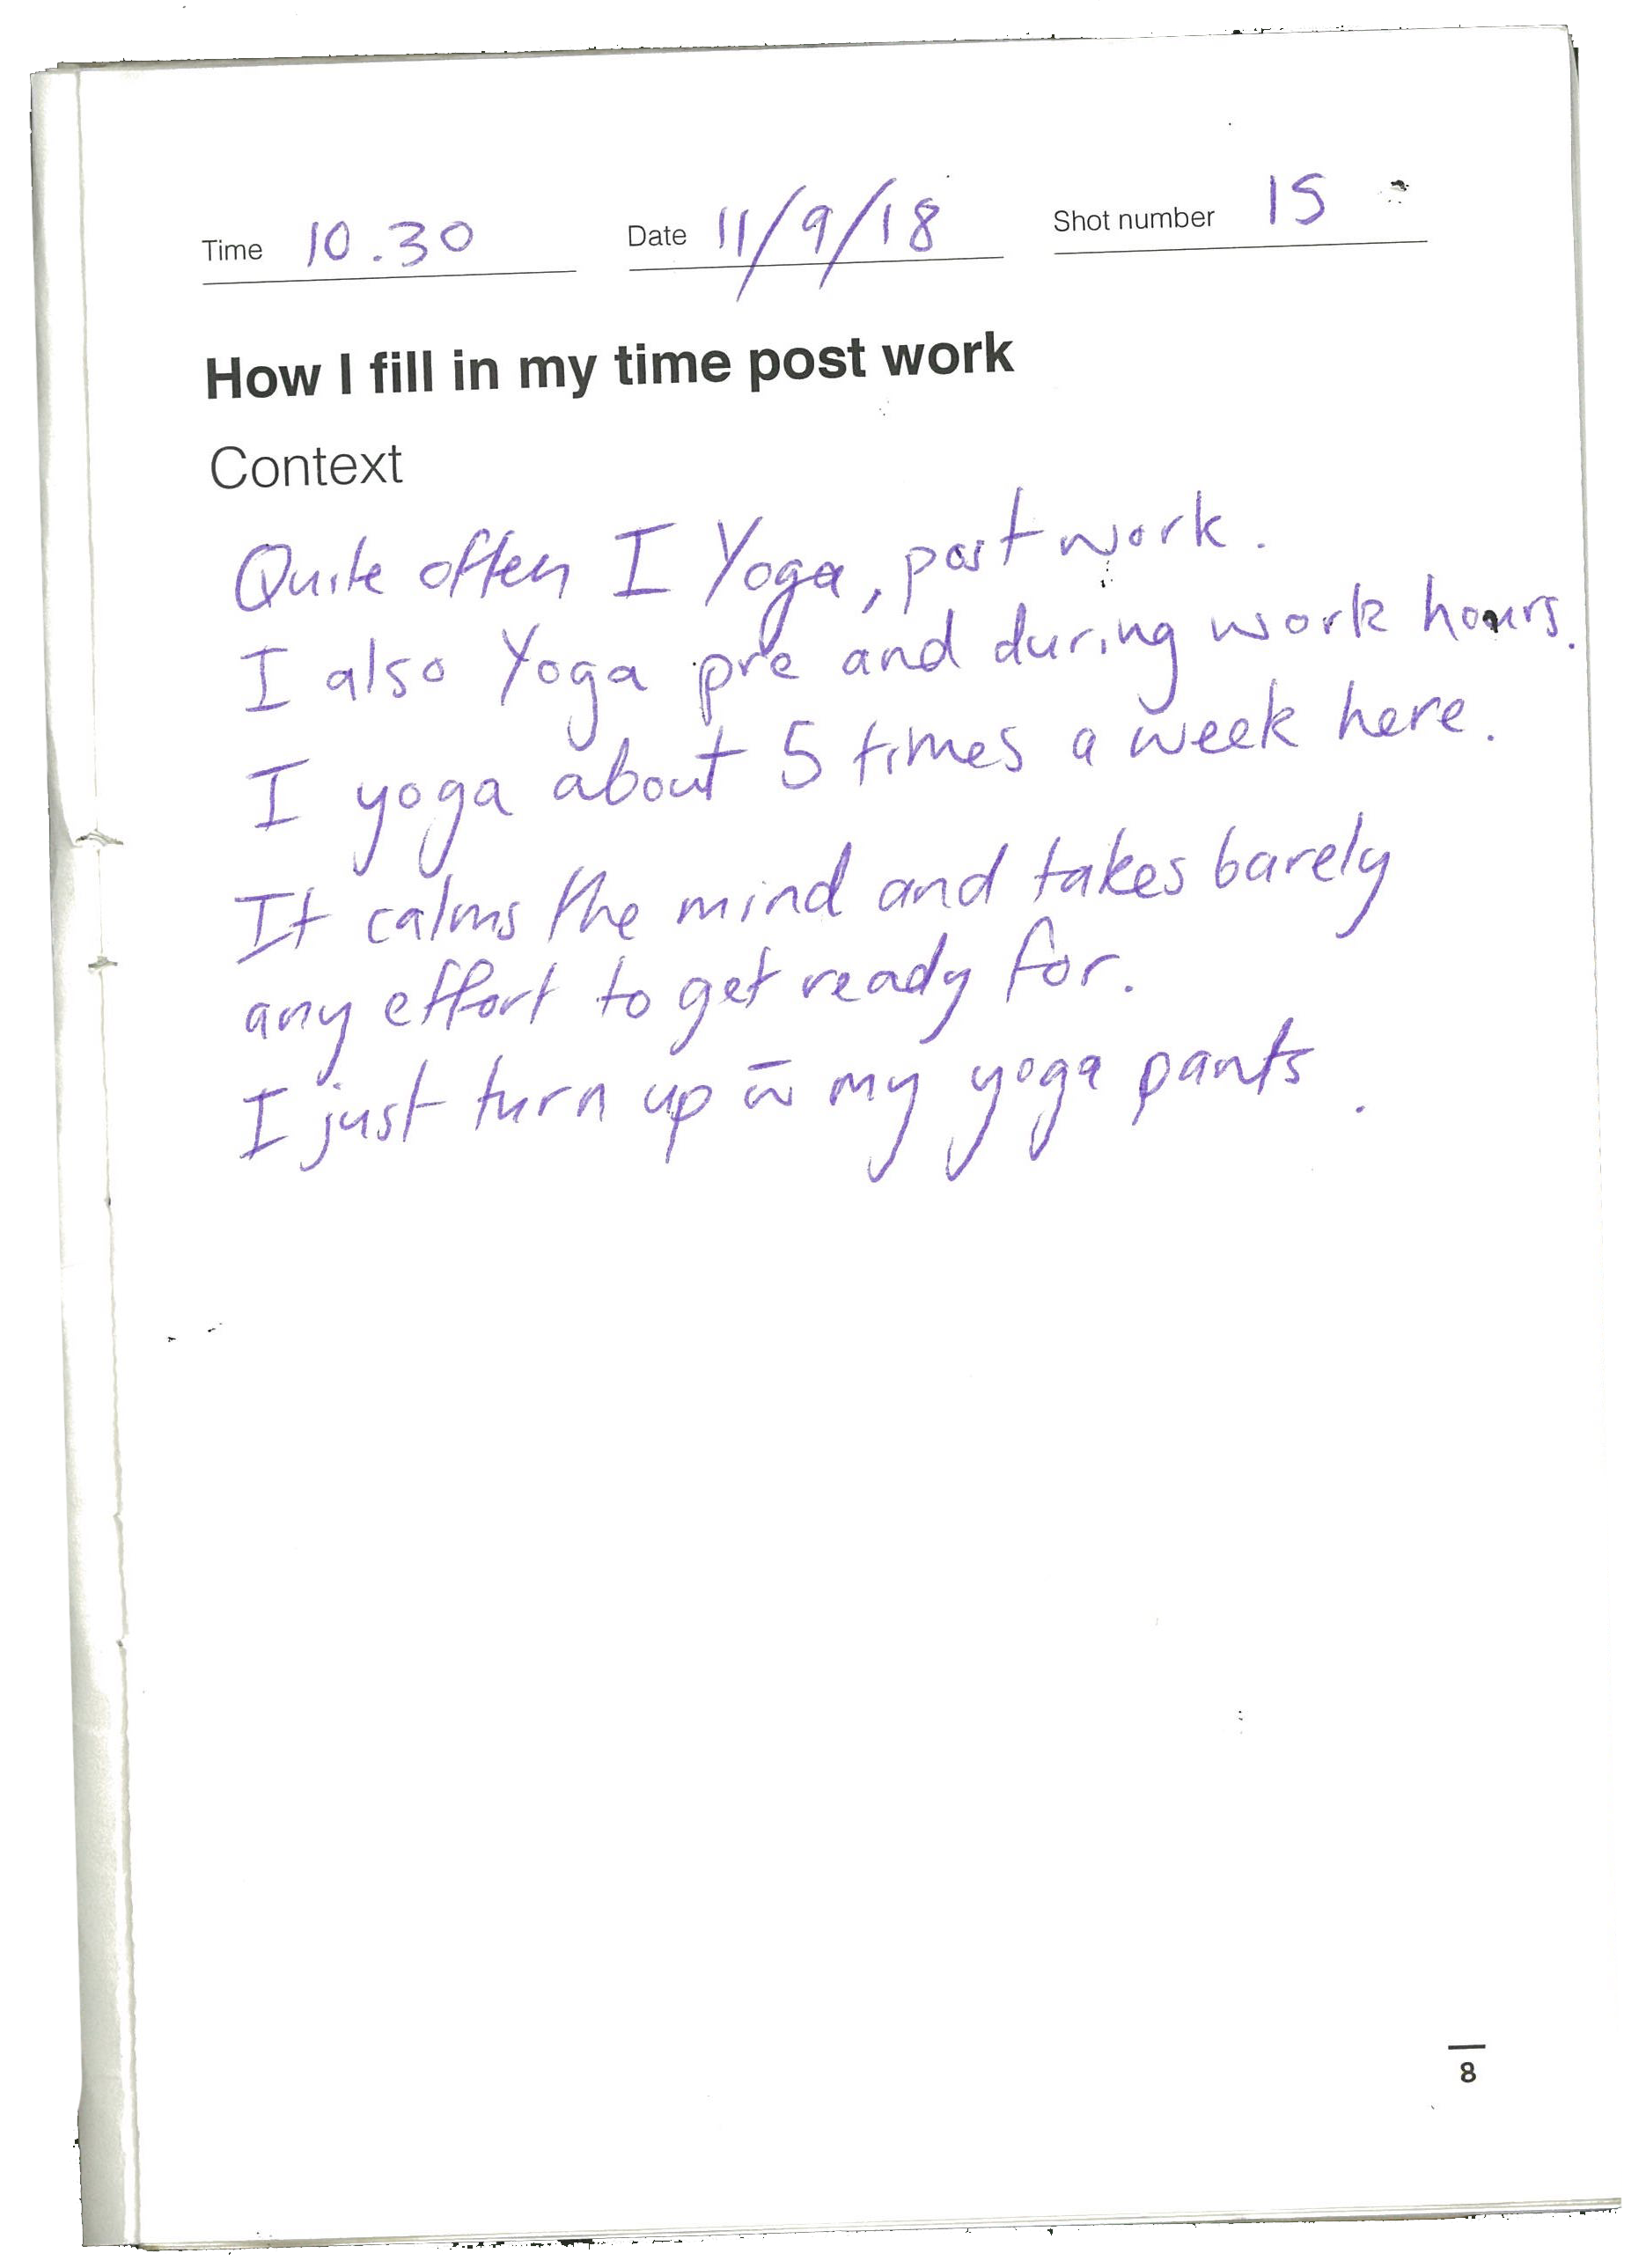 Time 10.30 Date 11/9/18 Shot number 15
How I fill in my time post work
Context
Quite often I Yoga, post work.
I also Yoga pre and during work hours.
I yoga about 5 times a week here.
It calms the mind and takes barely
any effort to get ready for.
I just turn up w̄ my yoga pants.
8